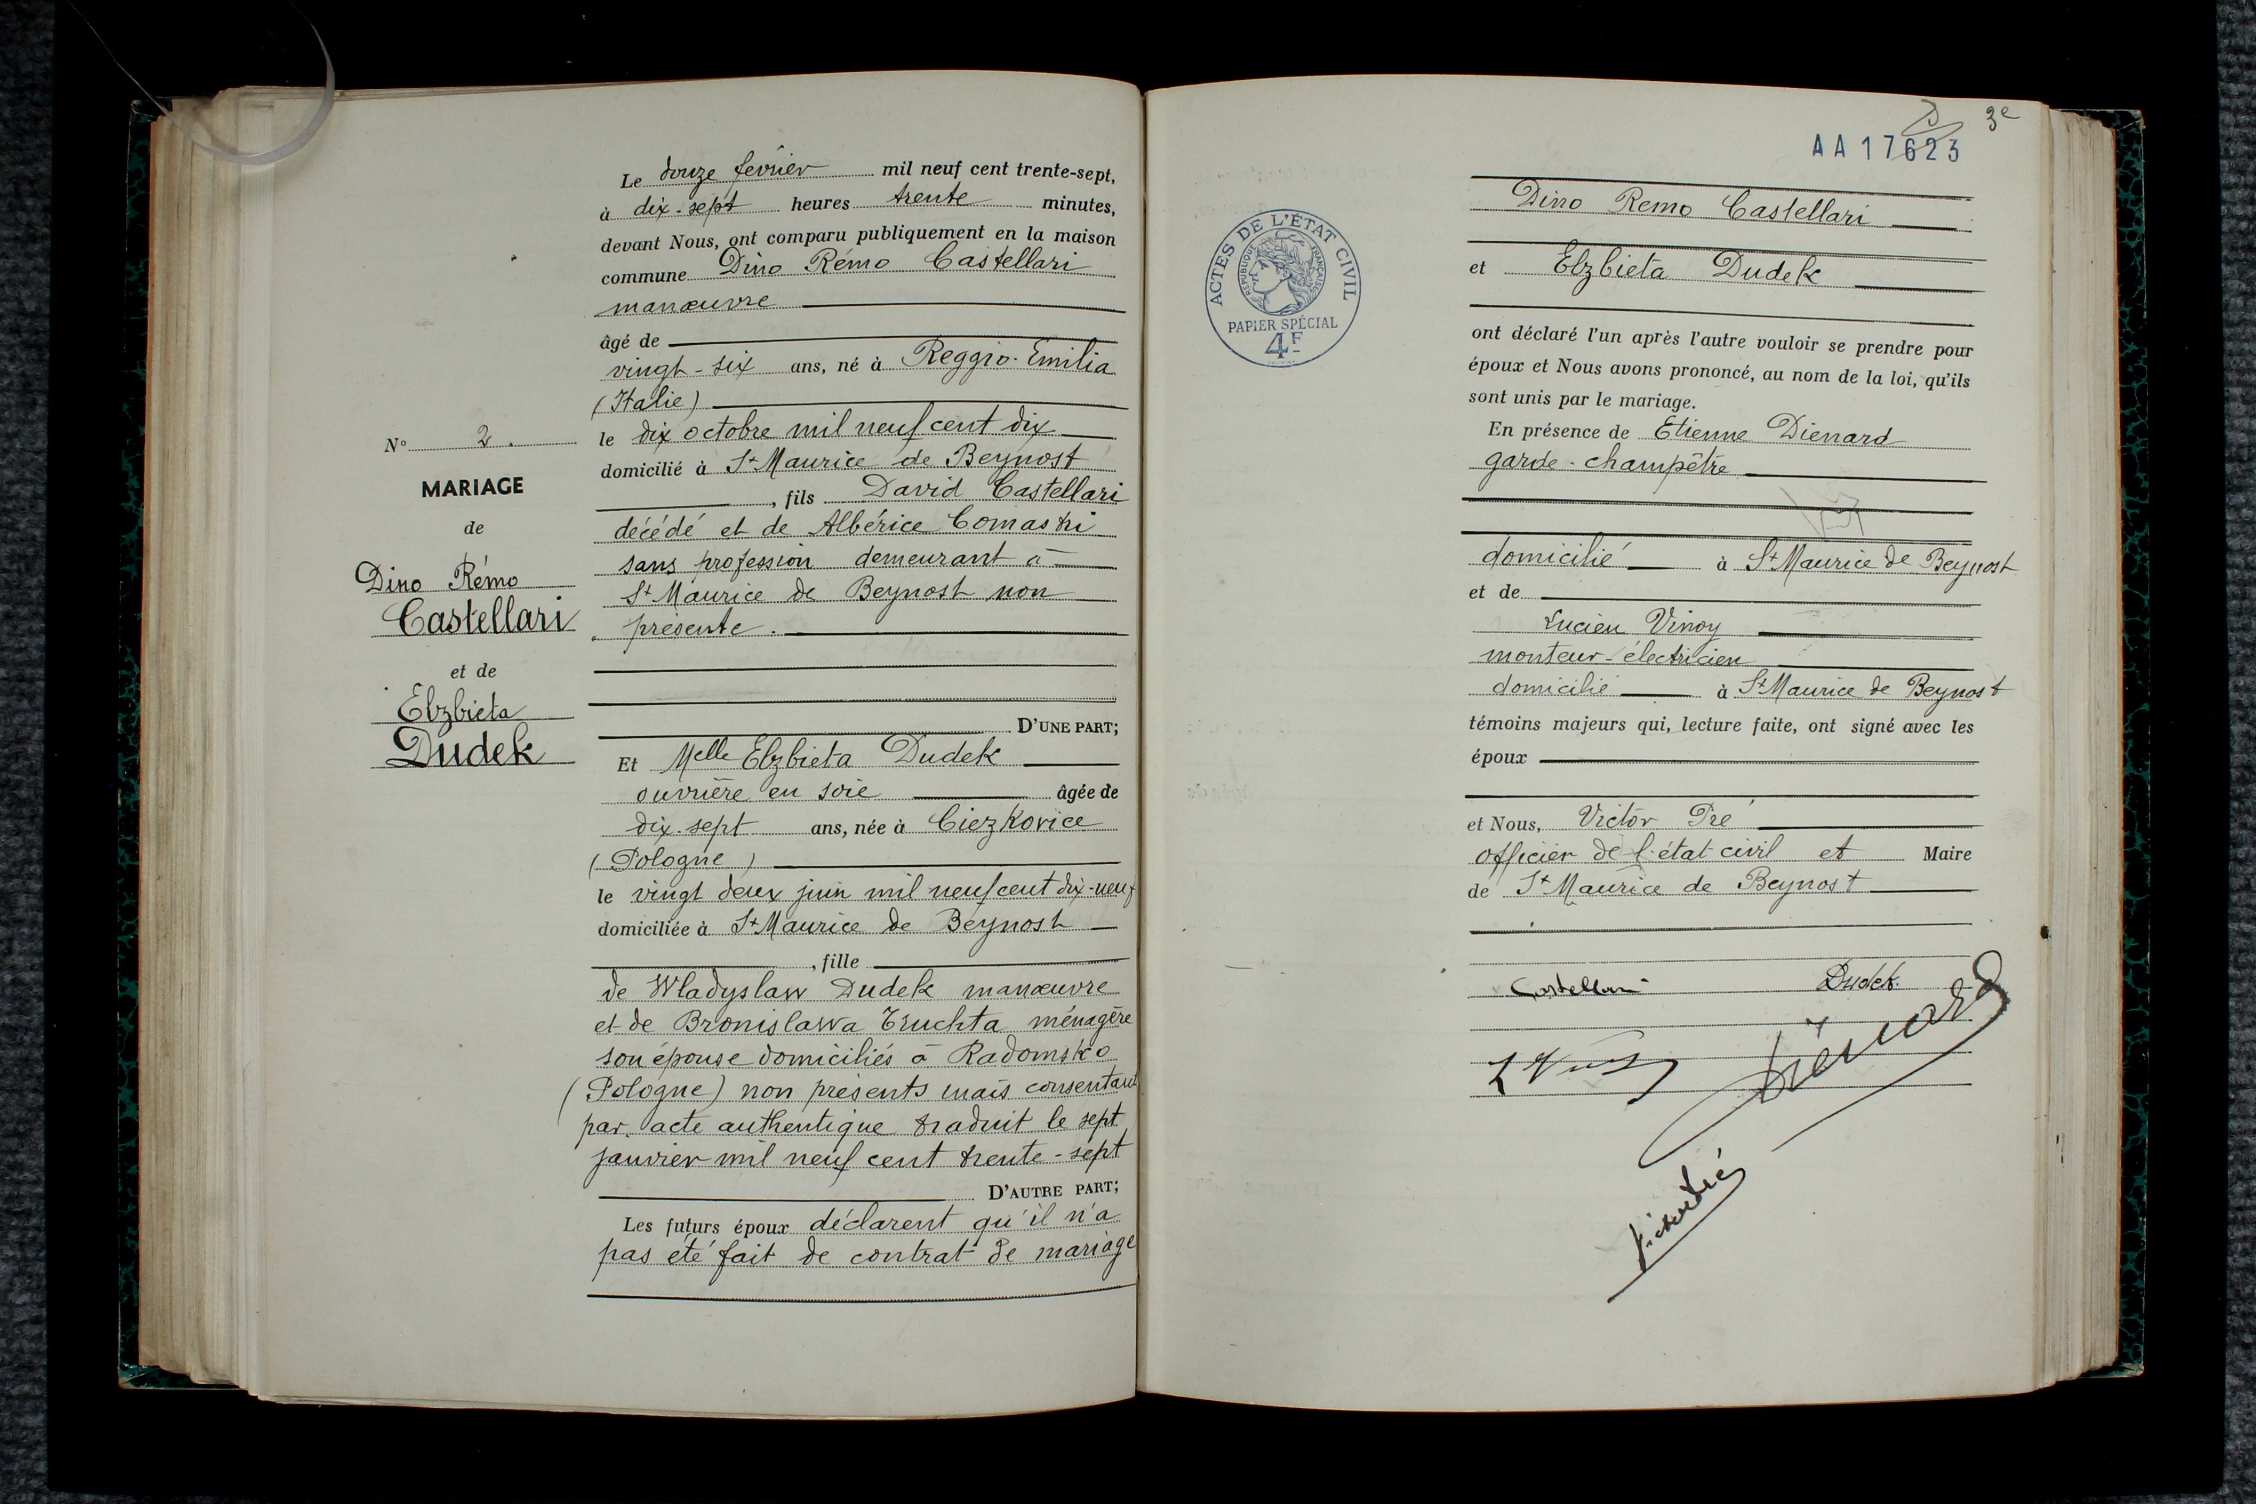 Le douze février mil neuf cent trente-sept,
à dix-sept heures trente minutes,
devant Nous, ont comparu publiquement en la maison
commune Dino Rémo Castellari
manœuvre
âgé de
vingt-six ans, né à Reggio-Emilia
(Italie)
le dix octobre mil neuf cent dix
domicilié à St Maurice de Beynost
, fils David Castellari
décédé et de Albérice Comastri
sans profession demeurant à
St Maurice de Beynost non
présente.
D'UNE PART;
Et Melle Elzbieta Dudek
ouvrière en soie âgée de
dix-sept ans, née à Ciezkovice
(Pologne)
le vingt deux juin mil neuf cent dix-neuf
domiciliée à St Maurice de Beynost
, fille
de Wladyslaw Dudek manœuvre
et de Bronislawa Truchta ménagère
son épouse domiciliés à Radomsko
(Pologne) non présents mais consentant
par acte authentique traduit le sept
janvier mil neuf cent trente-sept
D'AUTRE PART;
Les futurs époux déclarent qu'il n'a
pas été fait de contrat de mariage
N° 2.
MARIAGE
de
Dino Rémo
Castellari
et de
Elzbieta
Dudek
3e
AA 17623
ACTES DE L'ÉTAT CIVIL
RÉPUBLIQUE FRANÇAISE
PAPIER SPÉCIAL
4F
Dino Remo Castellari
et Elzbieta Dudek
ont déclaré l'un après l'autre vouloir se prendre pour
époux et Nous avons prononcé, au nom de la loi, qu'ils
sont unis par le mariage.
En présence de Etienne Dienard
garde-champêtre
domicilié à St Maurice de Beynost
et de
Lucien Vinoy
monteur-électricien
domicilié à St Maurice de Beynost
témoins majeurs qui, lecture faite, ont signé avec les
époux
et Nous, Victor Pré
officier de l'état civil et Maire
de St Maurice de Beynost
Castellari Dudek
Dienard